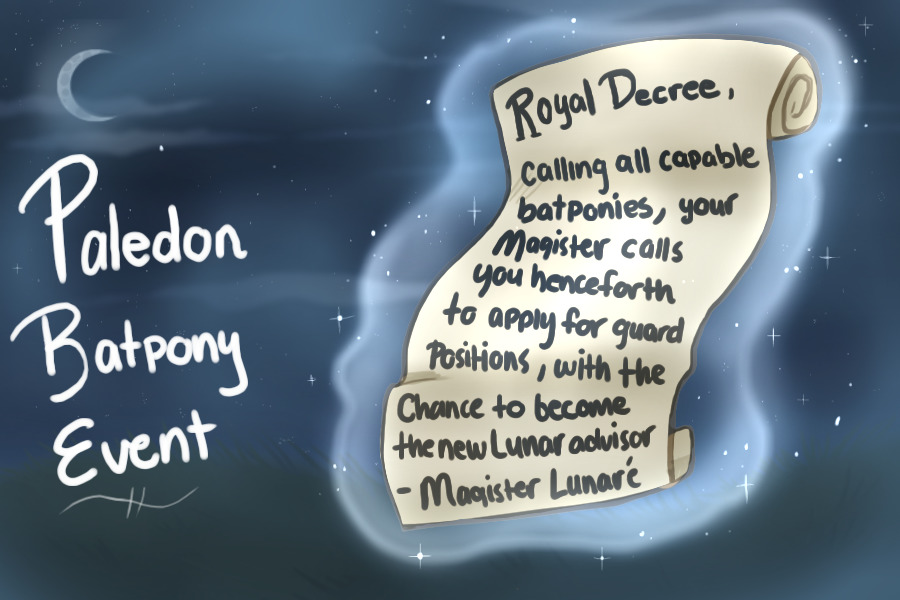 Paledon
Batpony
Event
Royal Decree,
calling all capable
batponies, your
Magister calls
you henceforth
to apply for guard
Positions, with the
Chance to become
the new Lunar advisor
- Magister Lunaré